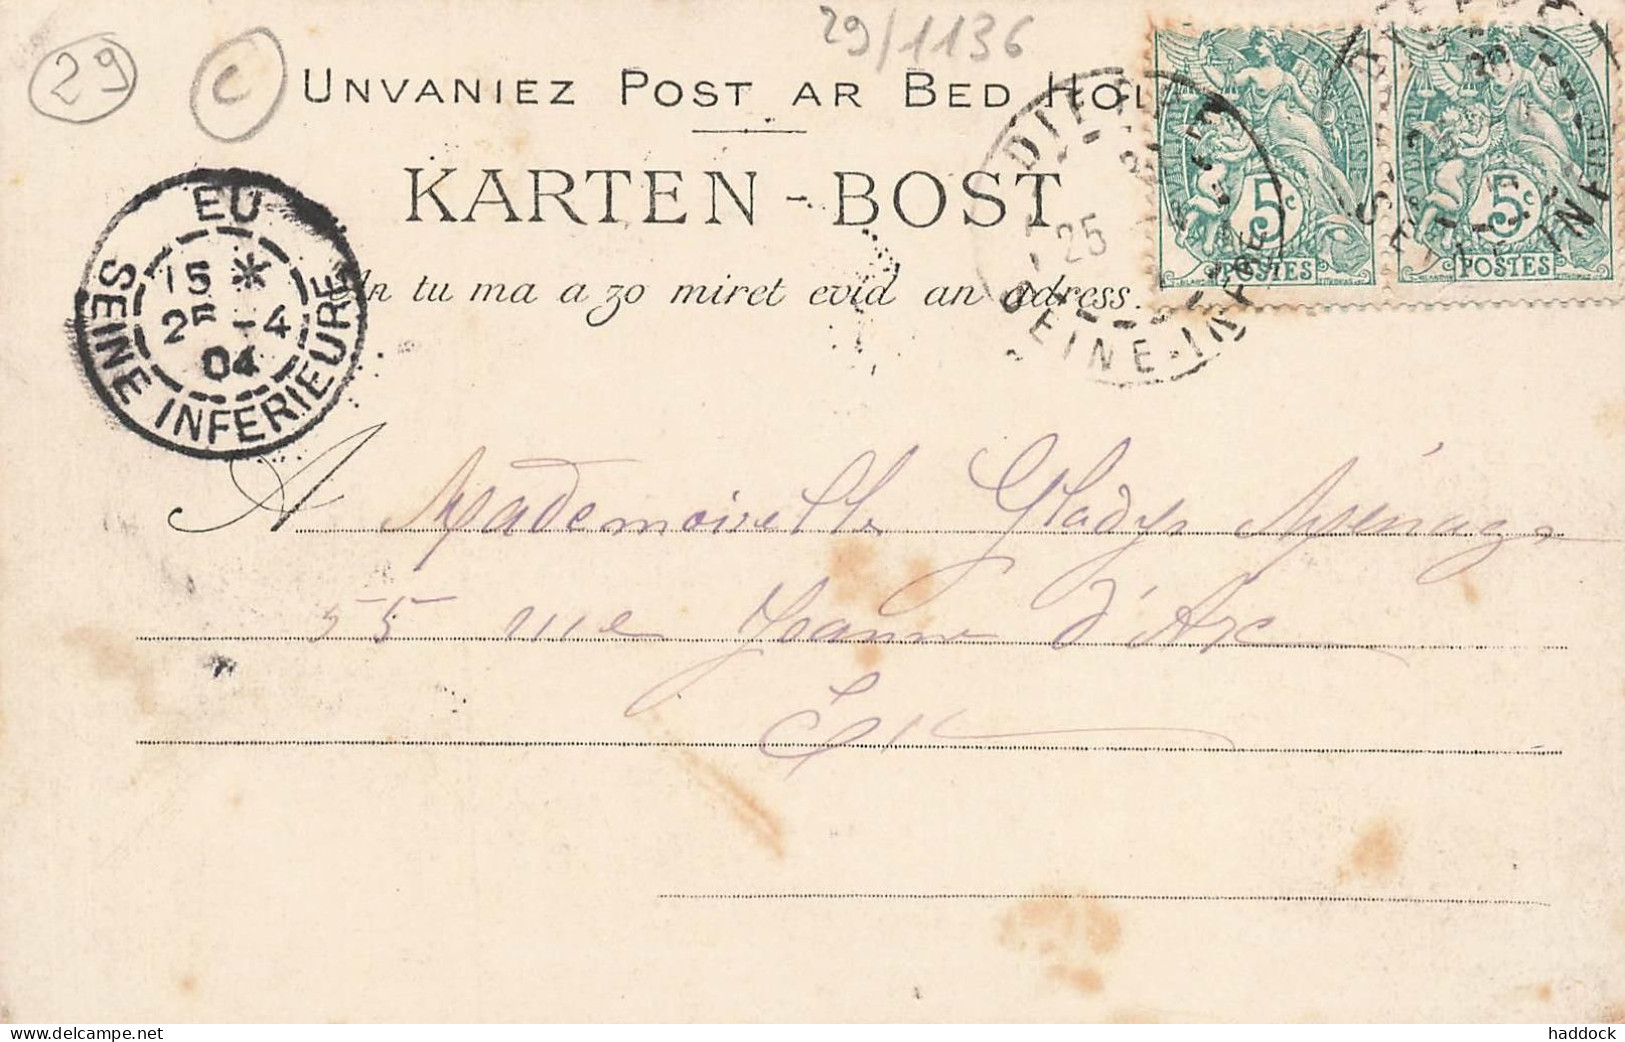 29
C
29/1136
UNVANIEZ POST AR BED HOL
KARTEN-BOST
An tu ma a zo miret evid an adress.
EU
15 *
25 -4
04
SEINE INFERIEURE
25
SEINE-INF
RÉPUBLIQUE FRANÇAISE
5c
POSTES
5c
POSTES
A Mademoiselle Gladys Ménage
55 rue Jeanne d'Arc
Eu
© delcampe.net
haddock